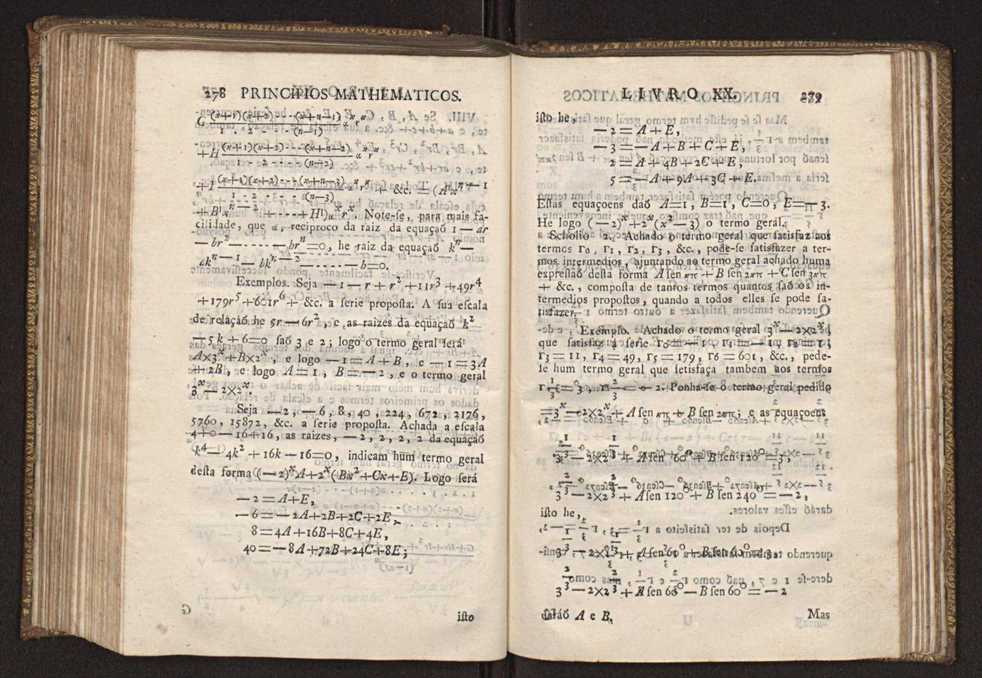 278 PRINCIPIOS MATHEMATICOS.
G (x+1)(x+2)---(x+n-2) / 1 . 2 ---- (n-1)
+H (x+1)(x+2)---(x+n-2) / 1 . 2 ---- (n-2)
+I (x+1)(x+2)---(x+n-3) / (n-3) + &c. =
+---+H)x rx. Note-se, para mais fa-
cilidade, que o reciproco da raiz da equaçaõ 1 — ar
— br2 - - - - - - — brn =0, he raiz da equaçaõ kn —
akn — 1 — bkn — 2 - - - - - — b=0.
Exemplos. Seja — 1 — r + r2 +11r3 +49r4
+179r5+601r6 + &c. a serie proposta. A sua escala
de relaçaõ he 5r — 6r2, e as raizes da equaçaõ k2
— 5k + 6=0 saõ 3 e 2; logo o termo geral será
A×3x+B×2x, e logo — 1=A+B, e — 1=3A
+2B, e logo A=1, B=—2, e o termo geral
3x—2×2x.
Seja —2, —6, 8, 40, 224, 672, 2176,
5760, 15872, &c. a serie proposta. Achada a escala
4+0—16+16, as raizes, —2, 2, 2, 2 da equaçaõ
k4—4k2+16k—16=0, indicam hum termo geral
desta forma (—2)xA+2x(Bx2+Cx+E). Logo será
—2=A+E,
—6=—2A+2B+2C+2E,
8=4A+16B+8C+4E,
40=—8A+72B+24C+8E;
isto
LIVRO XX. 279
isto he,
—2=A+E,
—3=—A+B+C+E,
2=A+4B+2C+E,
5=—A+9A+3C+E.
Estas equaçoens daõ A=1, B=1, C=0, E=—3.
He logo (—2)x+2x(x2—3) o termo geral.
Scholio 2. Achado o termo geral que satisfaz aos
termos r0, r1, r2, r3, &c., póde-se satisfazer a ter-
mos intermedios, ajuntando ao termo geral achado huma
expressaõ desta forma A sen xπ + B sen 2xπ + C sen 3xπ
+ &c., composta de tantos termos quantos saõ os in-
termedios propostos, quando a todos elles se póde sa-
tisfazer.
Exemplo. Achado o termo geral 3x—2×2x,
que satisfaz a serie r0=—1, r1=—1, r2=1,
r3=11, r4=49, r5=179, r6=601, &c., pede-
se hum termo geral que satisfaça tambem aos termos
r 1/3 = 3, r 2/3 = —2. Ponha-se o termo geral pedido
=3x—2×2x+A sen xπ+B sen 2xπ; e as equaçoens
3 1/3 — 2×2 1/3 + A sen 60 + B sen 120 = 3,
3 2/3 — 2×2 2/3 + A sen 120 + B sen 240 = —2,
isto he,
3 1/3 — 2×2 1/3 + A sen 60° + B sen 60° = 3
3 2/3 — 2×2 2/3 + A sen 60° — B sen 60° = —2
daráõ A e B,
Mas